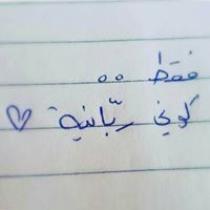 فقط..
كوني ربّانية ♡